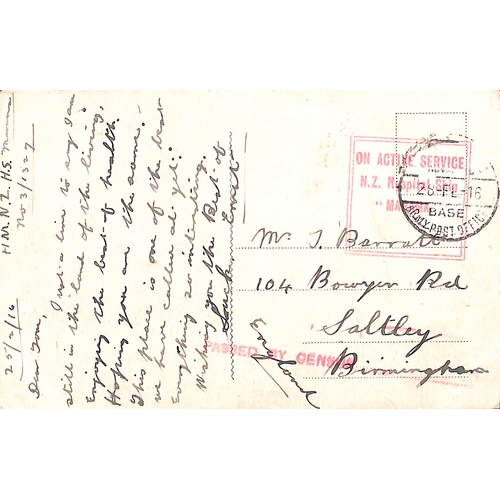 H.M.N.Z.H.S.
No 3/1327
25/2/16
Dear Tom, Just a line to say I am
still in the land of the living,
Enjoying the best of health.
Hoping you are the same.
This place is one of the best
we have called at yet.
Everything so interesting.
Wishing you the Best of
Luck Ernest
ON ACTIVE SERVICE
N.Z. Hospital Ship
BASE
ARMY POST OFFICE
PASSED BY CENSOR
Mr T Barratt
104 Bowyer Rd
Saltley
Birmingham
England